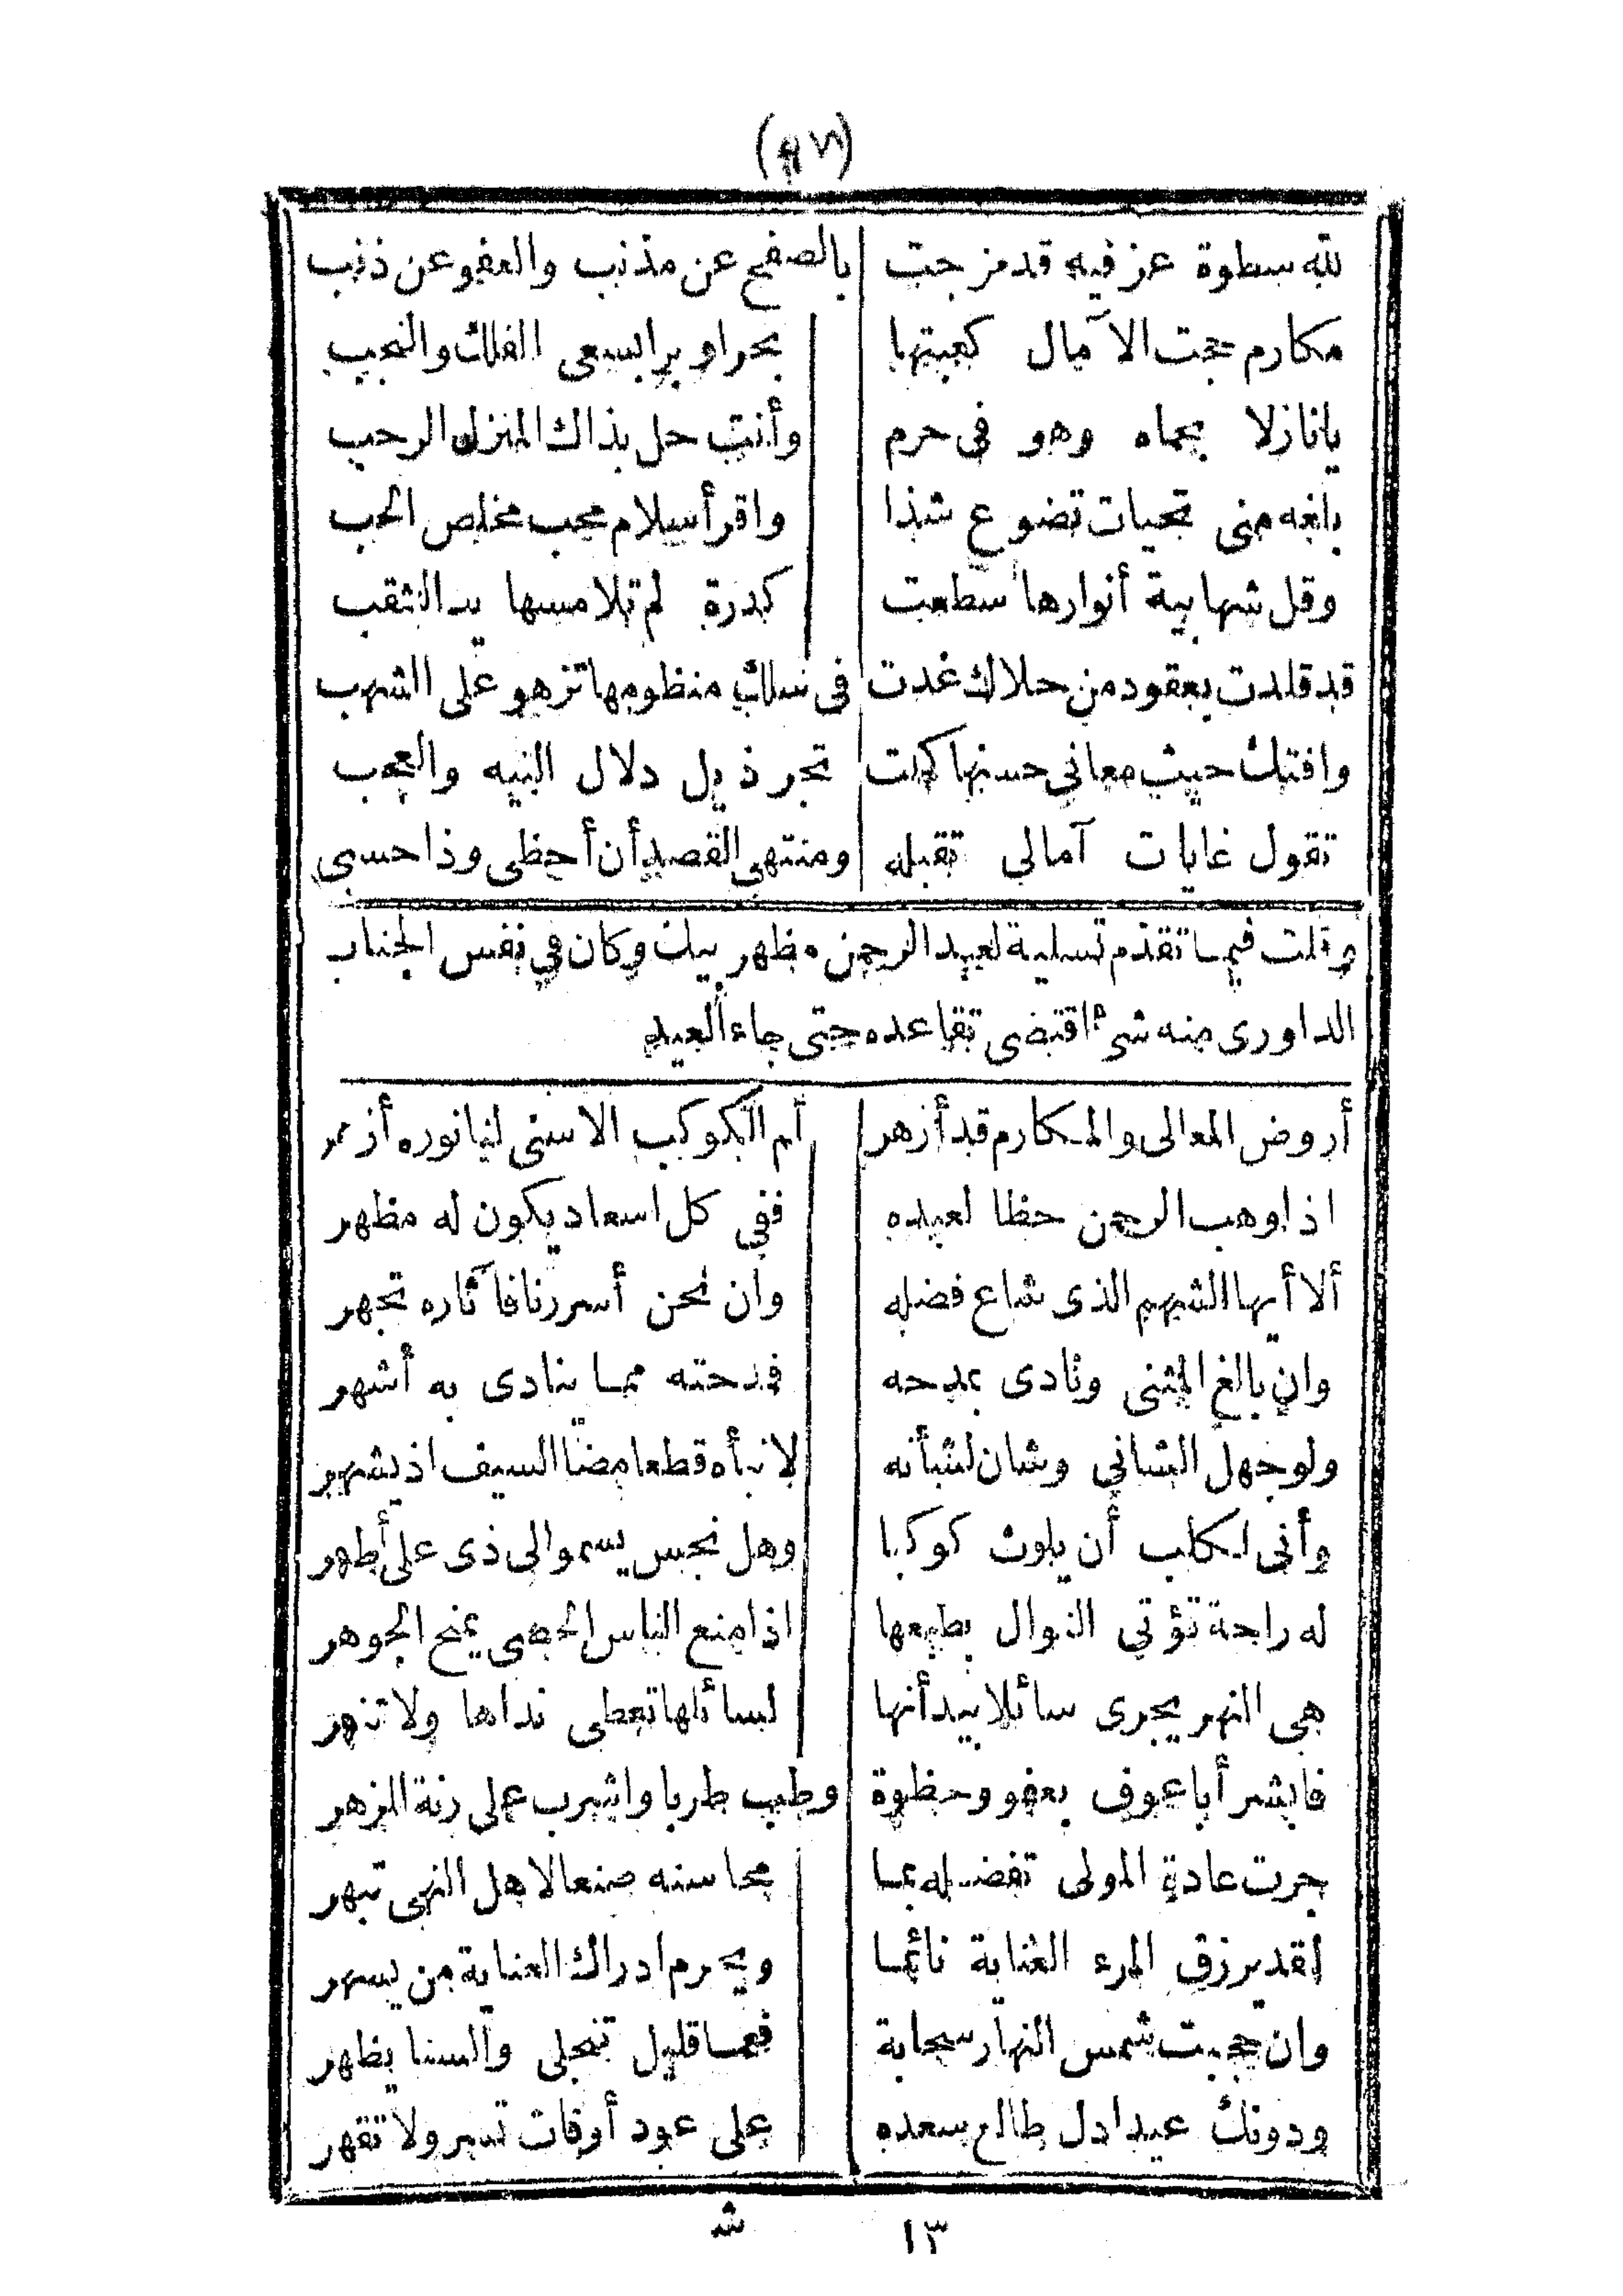 (٩٧)
لله سطوة عز فيه قد مزجت بالصفح عن مذنب والعفو عن ذنب
مكارم حجت الآمال كعبتها بحرا وبرا بسعى الفلك والنجب
يانازلا بحماه وهو فى حرم وأنت حل بذاك المنزل الرحب
بلغه منى تحيات تضوع شذا واقرأ سلام محب مخلص الحب
وقل شهابية أنوارها سطعت كدرة لم تلامسها يد الثقب
قد قلدت بعقود من حلاك غدت فى سلك منظومها تزهو على الشهب
وافتك حيث معانى حسنها كملت تجر ذيل دلال التيه والعجب
تقول غايات آمالى تقبله ومنتهى القصد أن أحظى وذا حسبى
وقلت فيما تقدم تسلية لعبد الرحمن مظهر بيك وكان في نفس الجناب
الداورى منه شئ اقتضى تقاعده حتى جاء العيد
أروض المعالى والمكارم قد أزهر أم الكوكب الاسنى لنا نوره أزمر
اذا وهب الرحمن حظا لعبده ففى كل اسعاد يكون له مظهر
ألا أيها الشهم الذى شاع فضله وان نحن أسررنا فآثاره تجهر
وان بالغ المثنى ونادى بمدحه فمدحته مما ينادى به أشهر
ولو جهل الشانى وشان لشأنه لانبأه قطعا مضا السيف اذ يشهر
وأنى لكلب أن يلوث كوكبا وهل نجس يسمو الى ذى على أطهر
له راحة تؤتى النوال بطبعها اذا منع الناس الحصى يمنح الجوهر
هى النهر يجرى سائلا بيد أنها لسائلها تعطى نداها ولا تنهر
فابشر أبا عوف بعفو وحظوة وطب طربا واشرب على رنة المزهر
جرت عادة المولى تفضله بما محاسنه صنعا لاهل النهى تبهر
لقد يرزق المرء العناية نائما ويحرم ادراك العناية من يسهر
وان حجبت شمس النهار سحابة فعما قليل تنجلى والسنا يظهر
ودونك عيدا دل طالع سعده على عود أوقات تسر ولا تقهر
١٣ ش